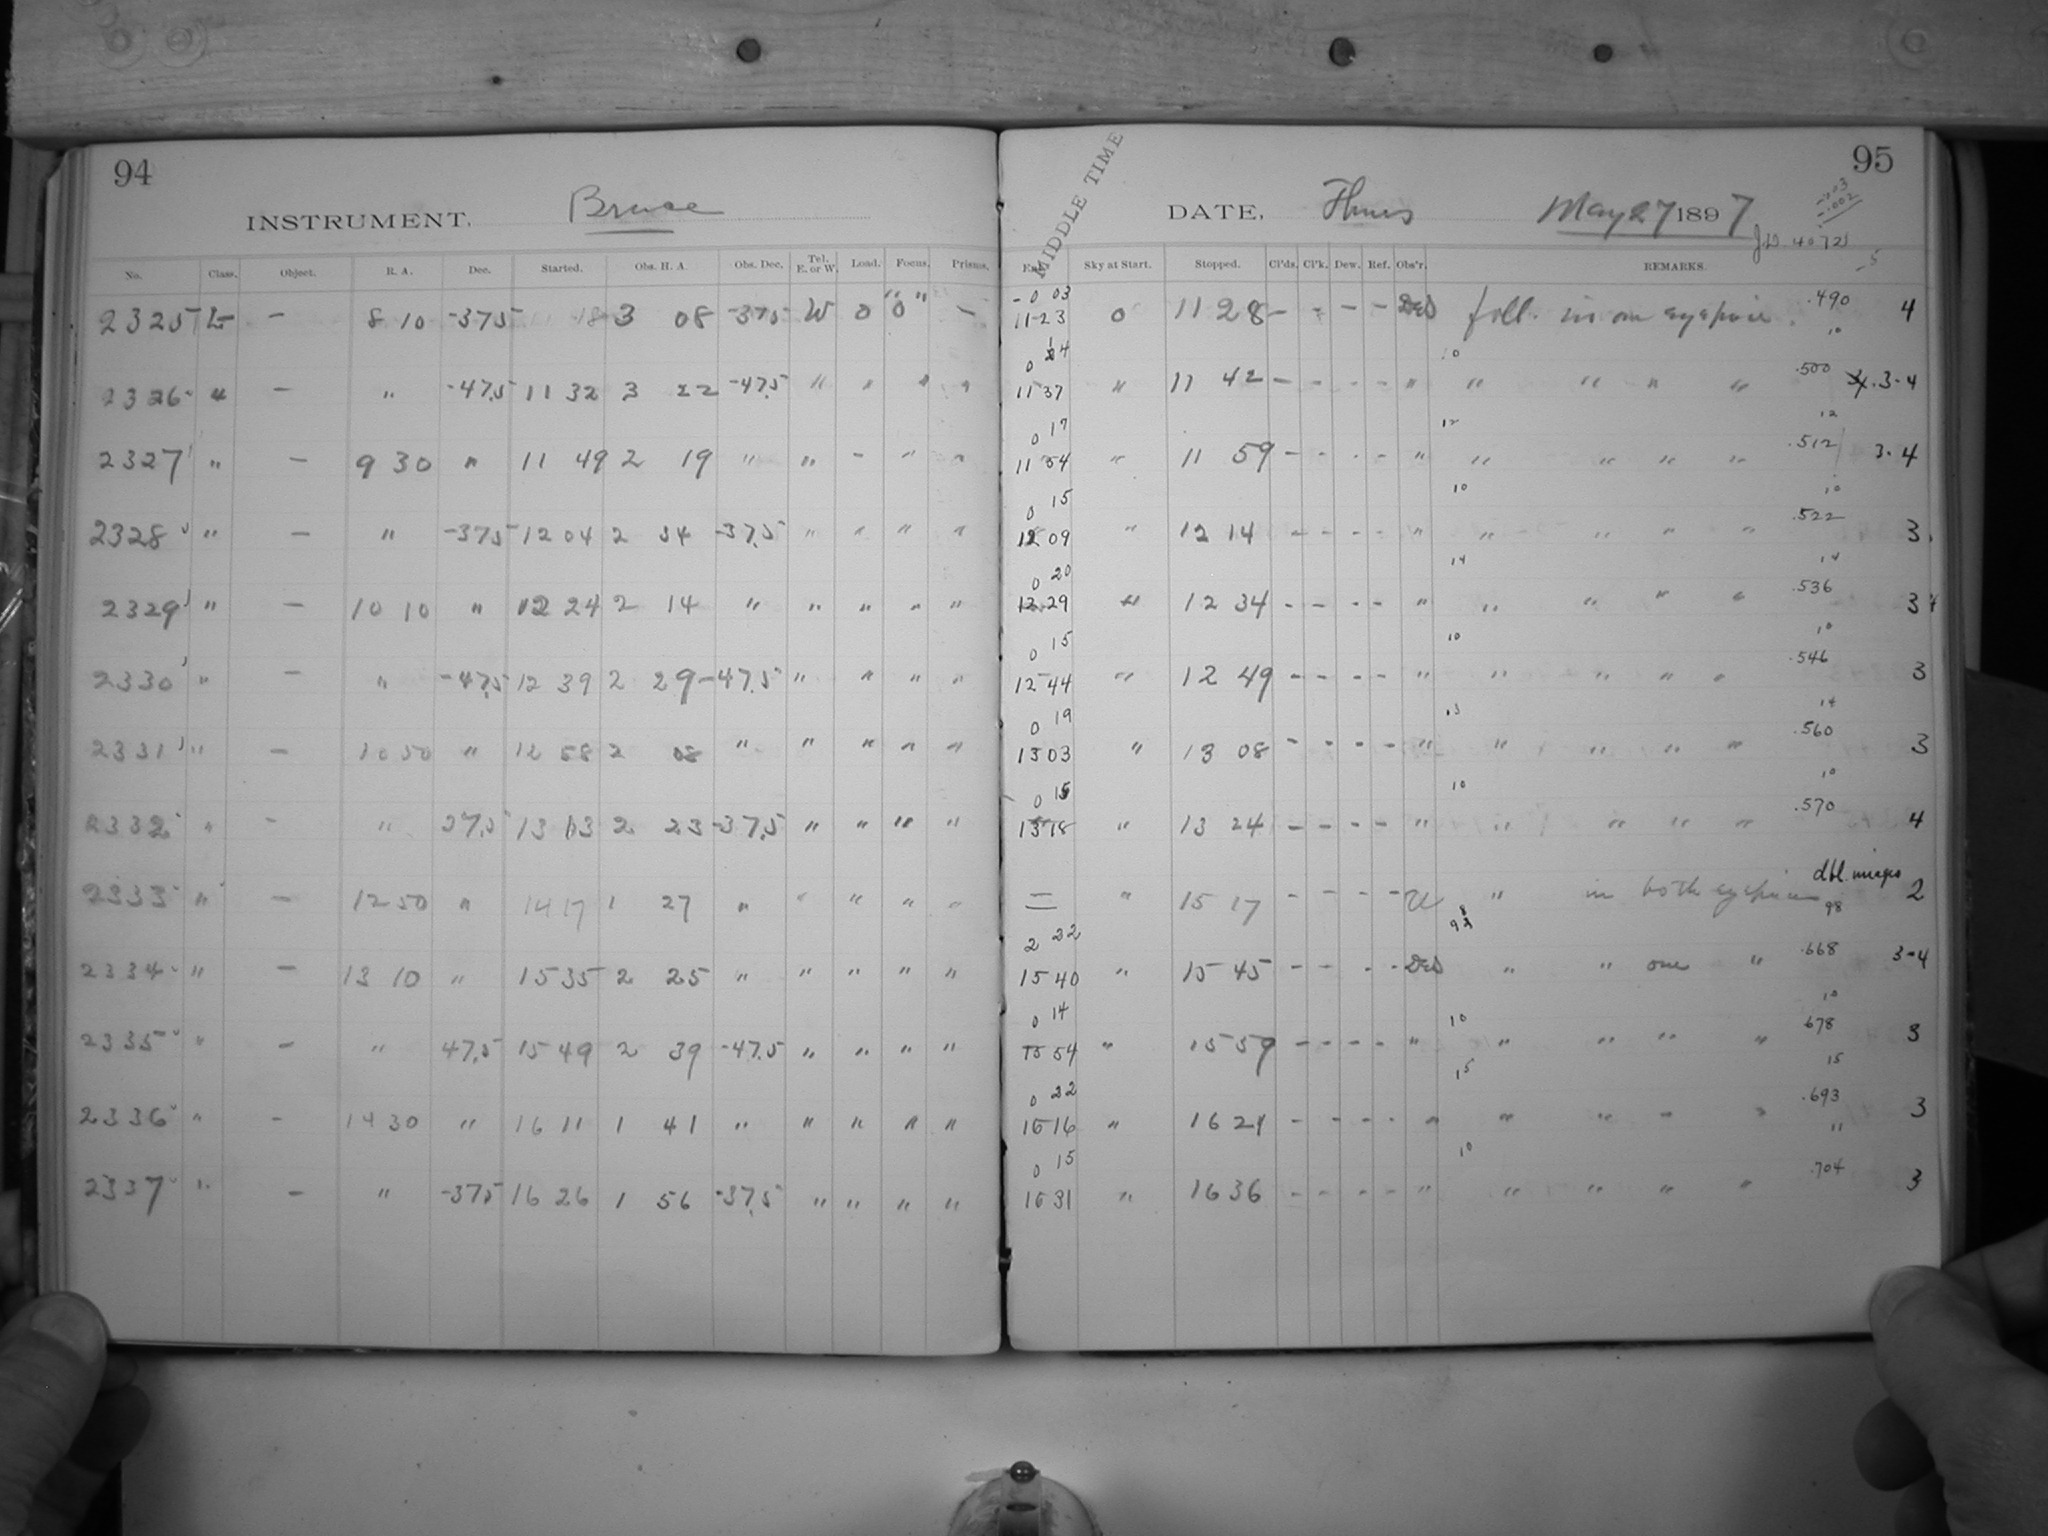 94
INSTRUMENT, Bruce
No. Class. Object. R. A. Dec. Started. Obs. H. A. Obs. Dec. Tel. E. or W. Load. Focus. Prisms.
2325 L - 8 10 -37.5 11 18 3 08 -37.5 W 0 "0" -
2326 " - " -47.5 11 32 3 22 -47.5 " " " "
2327 " - 9 30 " 11 49 2 19 " " - " "
2328 " - " -37.5 12 04 2 34 -37.5 " " " "
2329 " - 10 10 " 12 24 2 14 " " " " "
2330 " - " -47.5 12 39 2 29 -47.5 " " " "
2331 " - 10 50 " 12 58 2 08 " " " " "
2332 " - " 37.5 13 13 2 23 -37.5 " " " "
2333 " - 12 50 " 14 17 1 27 " " " " "
2334 " - 13 10 " 15 35 2 25 " " " " "
2335 " - " 47.5 15 49 2 39 -47.5 " " " "
2336 " - 14 30 " 16 11 1 41 " " " " "
2337 " - " -37.5 16 26 1 56 -37.5 " " " "
95
MIDDLE TIME
DATE, Thurs May 27 1897
-.003
-.002
J.D. 4072
-5
Sky at Start. Stopped. Cl'ds. Cl'k. Dew. Ref. Obs'r. REMARKS.
-0 03
11 23 0 11 28 - - - - foll. in one eyepiece .490 4
10
0 14 10
11 37 " 11 42 - - - - " " " " " .500 3-4
12
0 17 12
11 54 " 11 59 - - - - " " " " " .512 3-4
0 15 10 10
12 09 " 12 14 - - - - " " " " " .522 3
0 20 14 14
12 29 " 12 34 - - - - " " " " " .536 3
0 15 10 10
12 44 " 12 49 - - - - " " " " " .546 3
0 19 13 14
13 03 " 13 08 - - - - " " " " " .560 3
0 15 10 10
13 18 " 13 24 - - - - " " " " " .570 4
dbl. images
— " 15 17 - - - - " in both eyepieces 2
98
2 22
15 40 " 15 45 - - - - " " one " .668 3-4
0 14 10 10
15 54 " 15 59 - - - - " " " " " 678 3
15 15
0 22
16 16 " 16 21 - - - - " " " " " .693 3
11
0 15 10
16 31 " 16 36 - - - - " " " " " .704 3